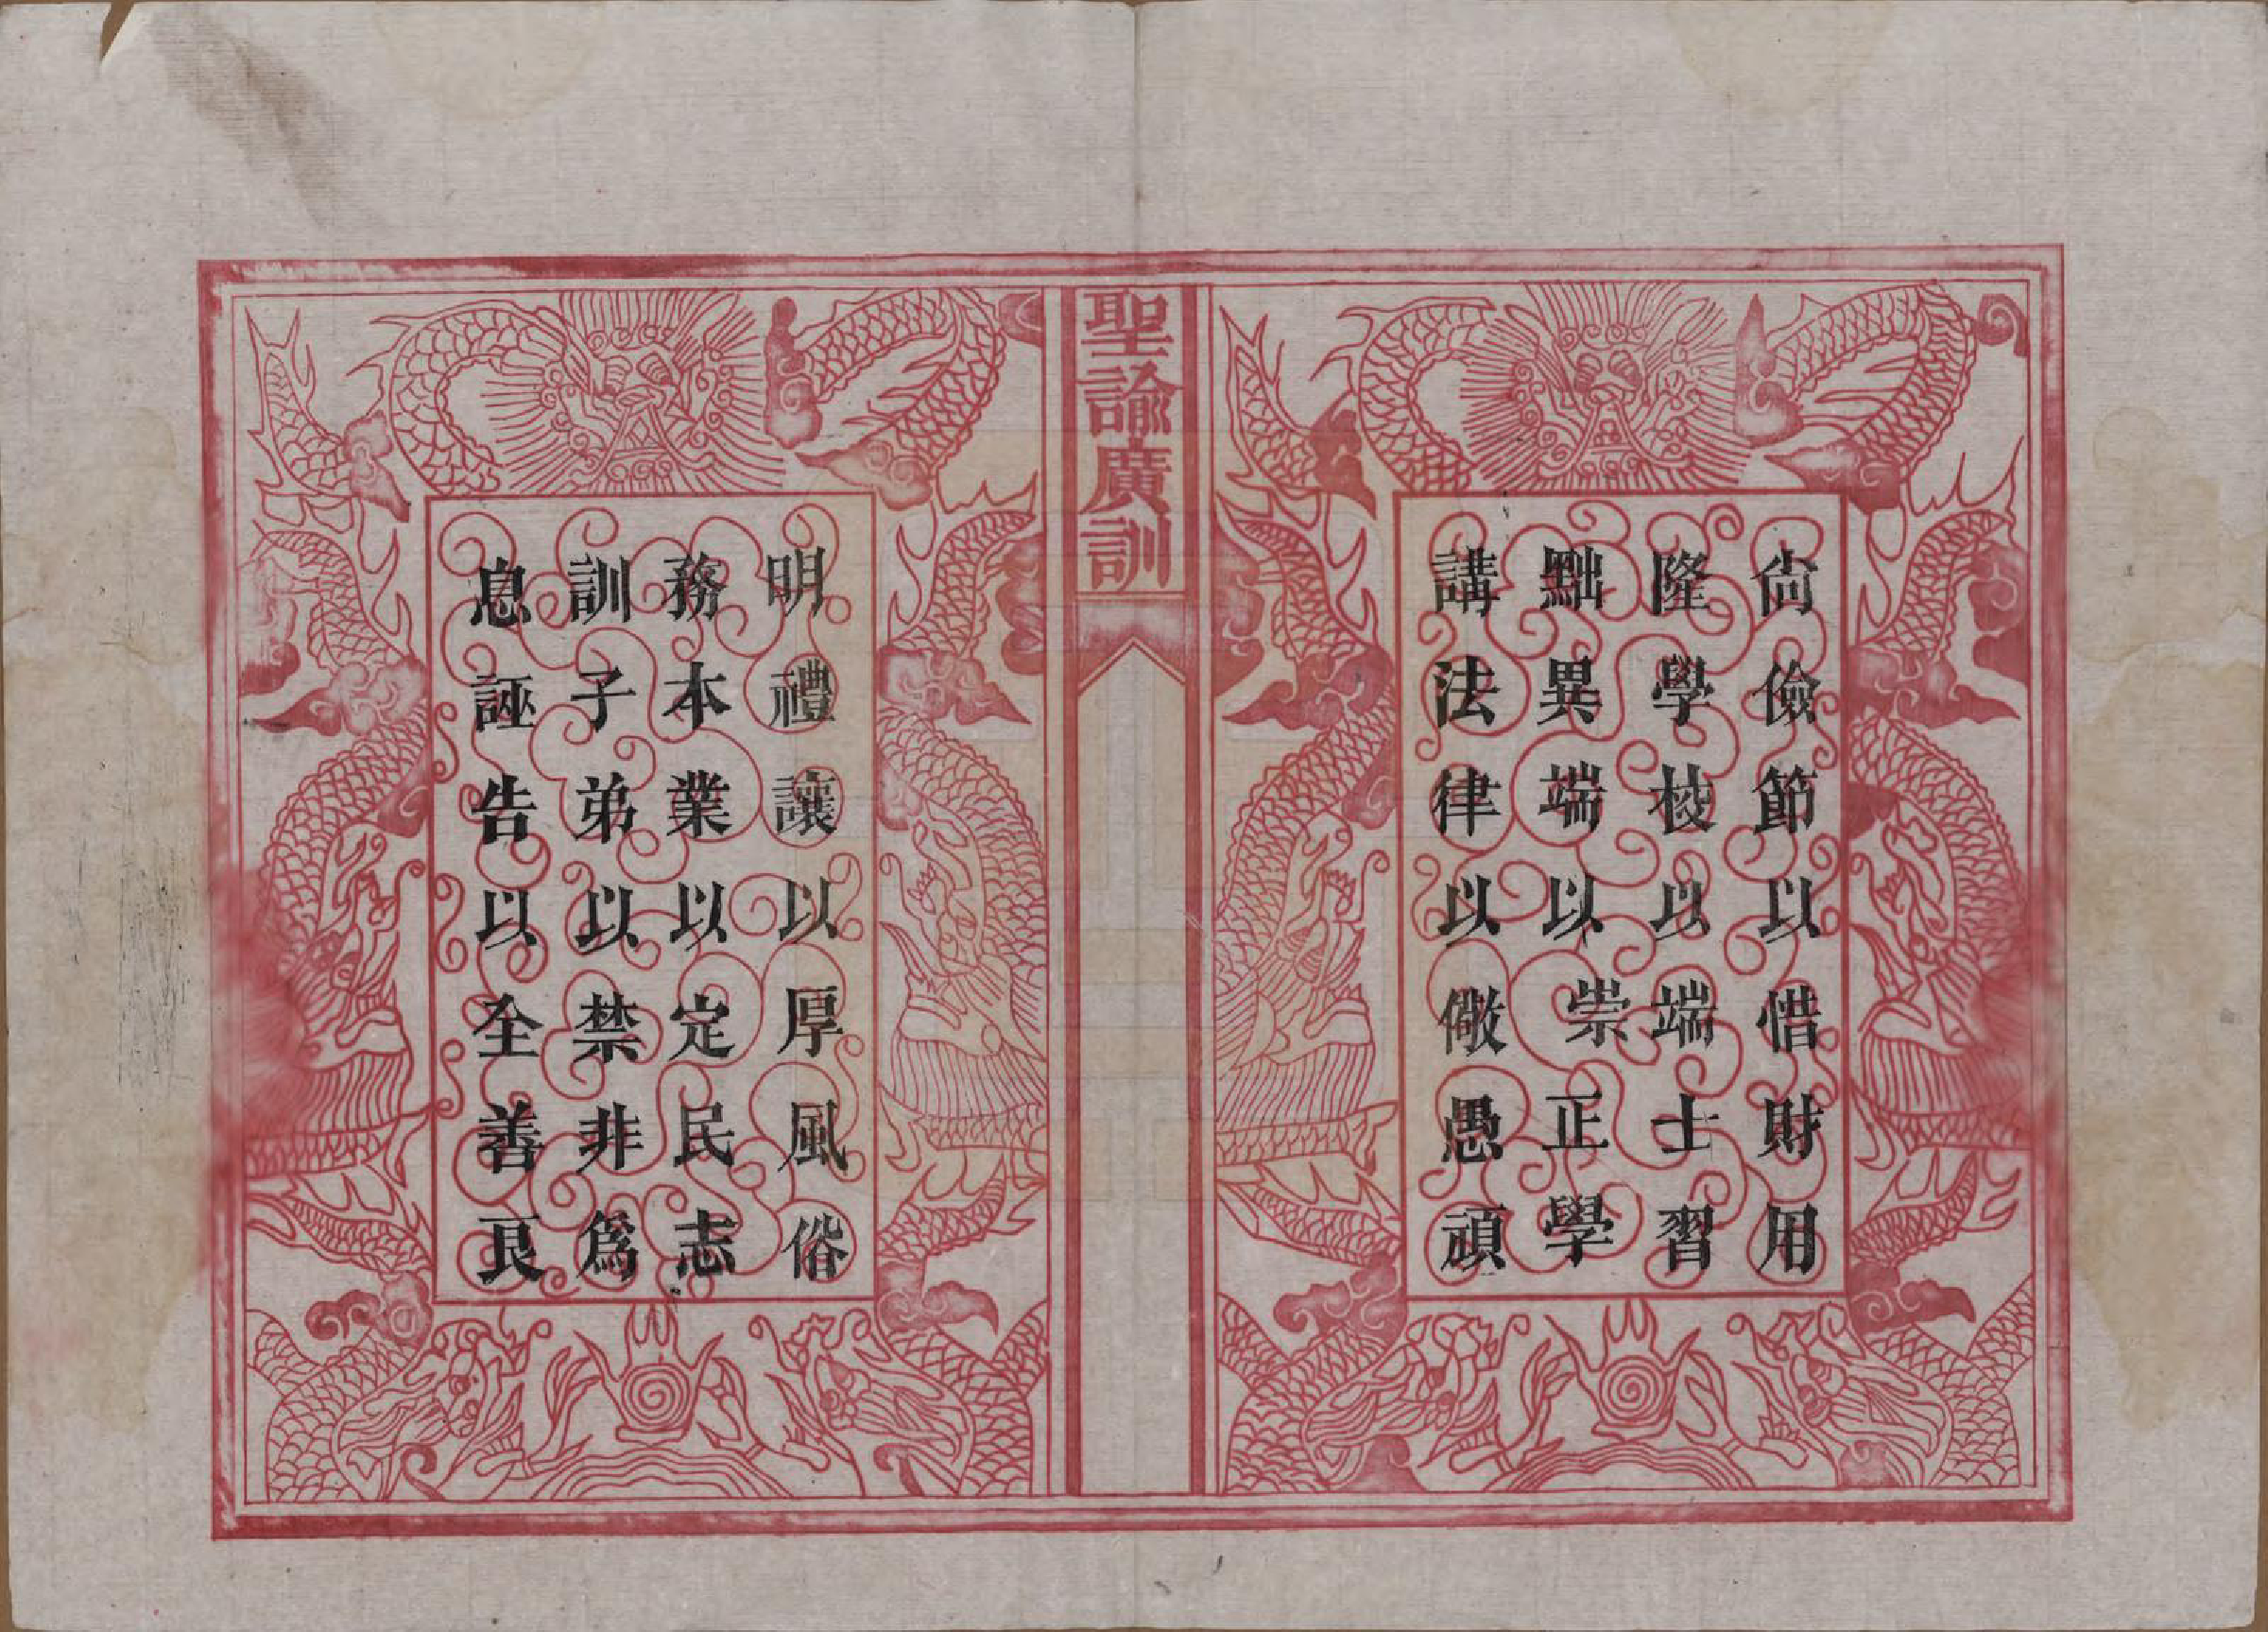 聖諭廣訓
尙儉節以惜財用
隆學校以端士習
黜異端以崇正學
講法律以儆愚頑
明禮讓以厚風俗
務本業以定民志
訓子弟以禁非爲
息誣告以全善良